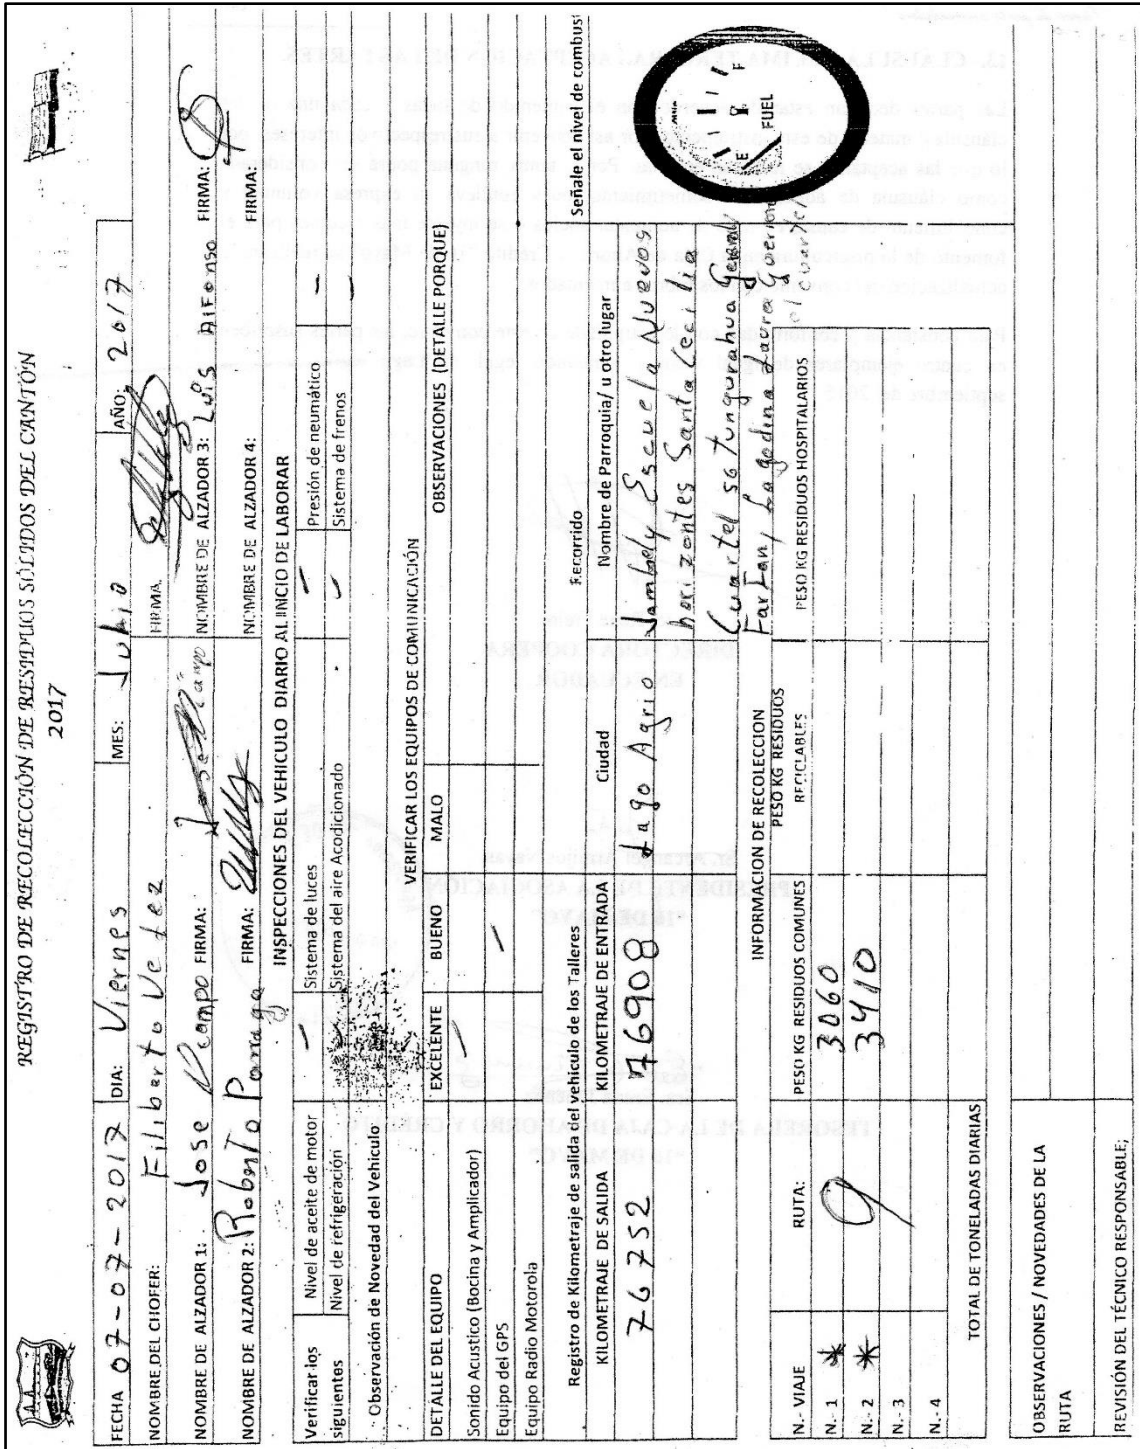 REGISTRO DE RECOLECCIÓN DE RESIDUOS SÓLIDOS DEL CANTÓN
2017
FECHA 07-07-2017 DIA: Viernes MES: Julio AÑO: 2017
NOMBRE DEL CHOFER: Filiberto FIRMA
NOMBRE DE ALZADOR 1: Jose FIRMA: NOMBRE DE ALZADOR 3: Luis Alfonso FIRMA:
NOMBRE DE ALZADOR 2: Roberto FIRMA: NOMBRE DE ALZADOR 4: FIRMA:
INSPECCIONES DEL VEHICULO DIARIO AL INICIO DE LABORAR
Verificar los Nivel de aceite de motor Sistema de luces Presión de neumático
siguientes Nivel de refrigeración Sistema del aire Acodicionado Sistema de frenos
Observación de Novedad del Vehiculo
VERIFICAR LOS EQUIPOS DE COMUNICACIÓN
DETALLE DEL EQUIPO EXCELENTE BUENO MALO OBSERVACIONES (DETALLE PORQUE)
Sonido Acustico (Bocina y Amplicador)
Equipo del GPS
Equipo Radio Motorola
Registro de Kilometraje de salida el vehiculo de los Talleres Recorrido Señale el nivel de combus
KILOMETRAJE DE SALIDA KILOMETRAJE DE ENTRADA Ciudad Nombre de Parroquia/ u otro lugar
76752 76908 Lago Agrio Jambely Escuela Nuevos
horizontes Santa Cecilia
Cuartel 56 Tungurahua
Farfan, Lagodina Laura
el cuartel
E F
FUEL
INFORMACION DE RECOLECCION
N.- VIAJE RUTA: PESO KG RESIDUOS COMUNES PESO KG RESIDUOS RECICLABLES PESO KG RESIDUOS HOSPITALARIOS
N.- 1 * 9 3060
N.- 2 * 3410
N.- 3
N.- 4
TOTAL DE TONELADAS DIARIAS
OBSERVACIONES / NOVEDADES DE LA
RUTA
REVISIÓN DEL TÉCNICO RESPONSABLE;